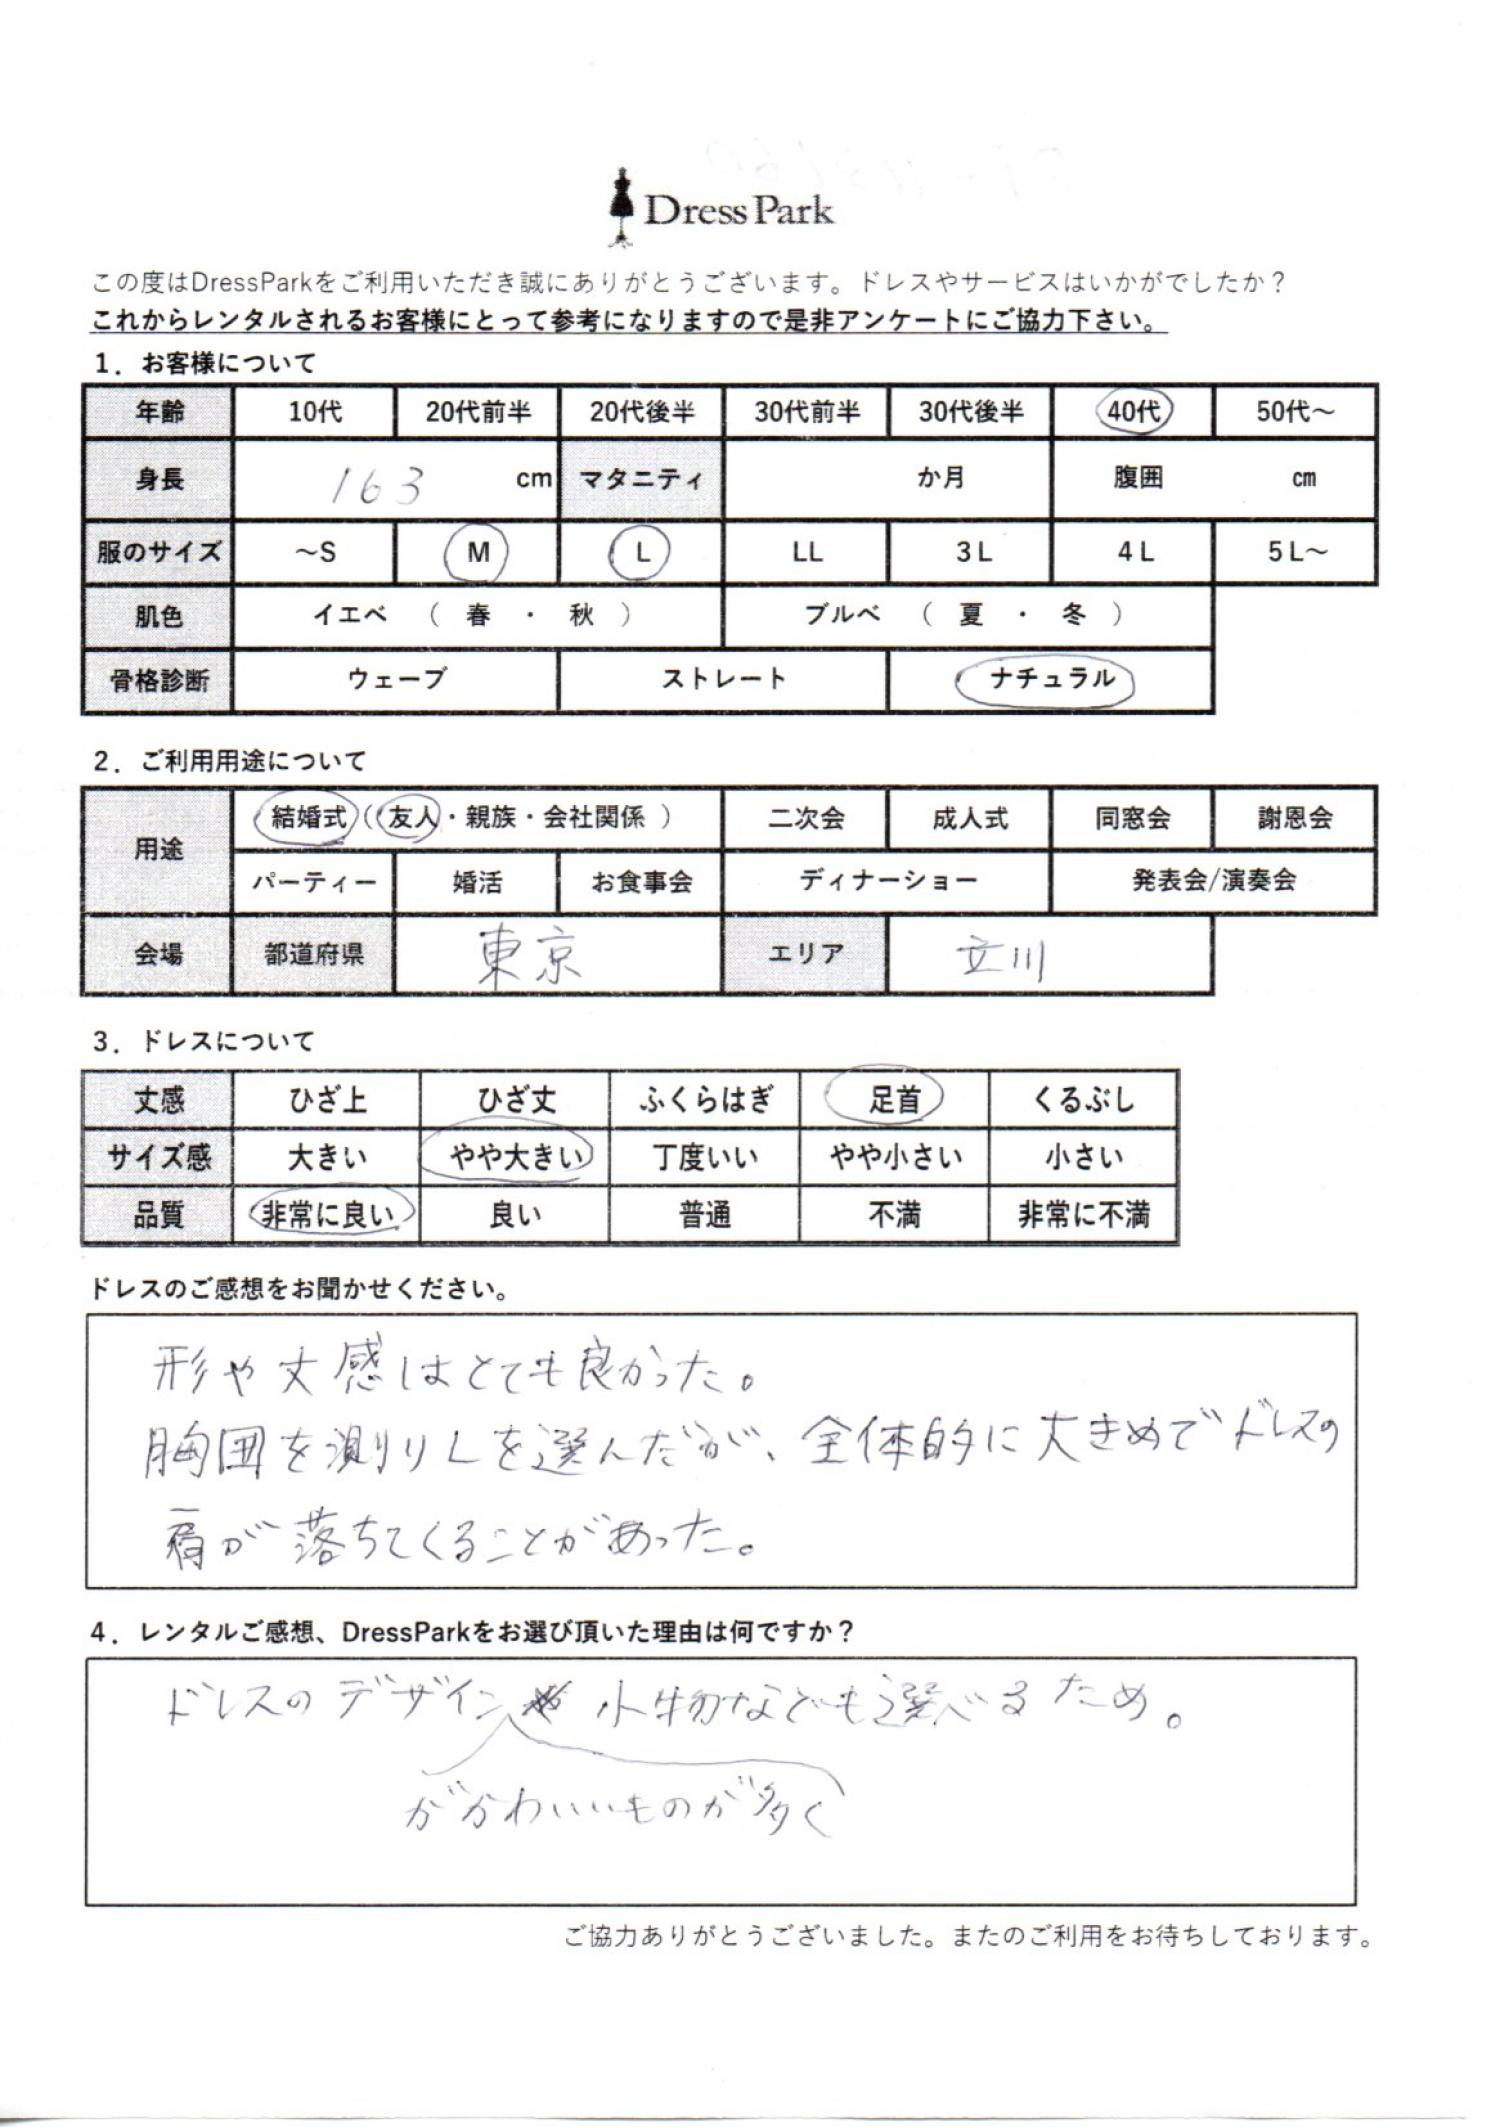 Dress Park
この度はDressParkをご利用いただき誠にありがとうございます。ドレスやサービスはいかがでしたか？
これからレンタルされるお客様にとって参考になりますので是非アンケートにご協力下さい。
1．お客様について
年齢 10代 20代前半 20代後半 30代前半 30代後半 40代 50代～
身長 163 cm マタニティ か月 腹囲 cm
服のサイズ ～S M L LL 3L 4L 5L～
肌色 イエベ （ 春 ・ 秋 ） ブルベ （ 夏 ・ 冬 ）
骨格診断 ウェーブ ストレート ナチュラル
2．ご利用用途について
用途 結婚式（友人・親族・会社関係 ） 二次会 成人式 同窓会 謝恩会
パーティー 婚活 お食事会 ディナーショー 発表会/演奏会
会場 都道府県 東京 エリア 立川
3．ドレスについて
丈感 ひざ上 ひざ丈 ふくらはぎ 足首 くるぶし
サイズ感 大きい やや大きい 丁度いい やや小さい 小さい
品質 非常に良い 良い 普通 不満 非常に不満
ドレスのご感想をお聞かせください。
形や丈感はとても良かった。
胸囲を測りLを選んだが、全体的に大きめでドレスの
肩が落ちてくることがあった。
4．レンタルご感想、DressParkをお選び頂いた理由は何ですか？
ドレスのデザイン 小物なども選べるため。
がかわいいものが多く
ご協力ありがとうございました。またのご利用をお待ちしております。